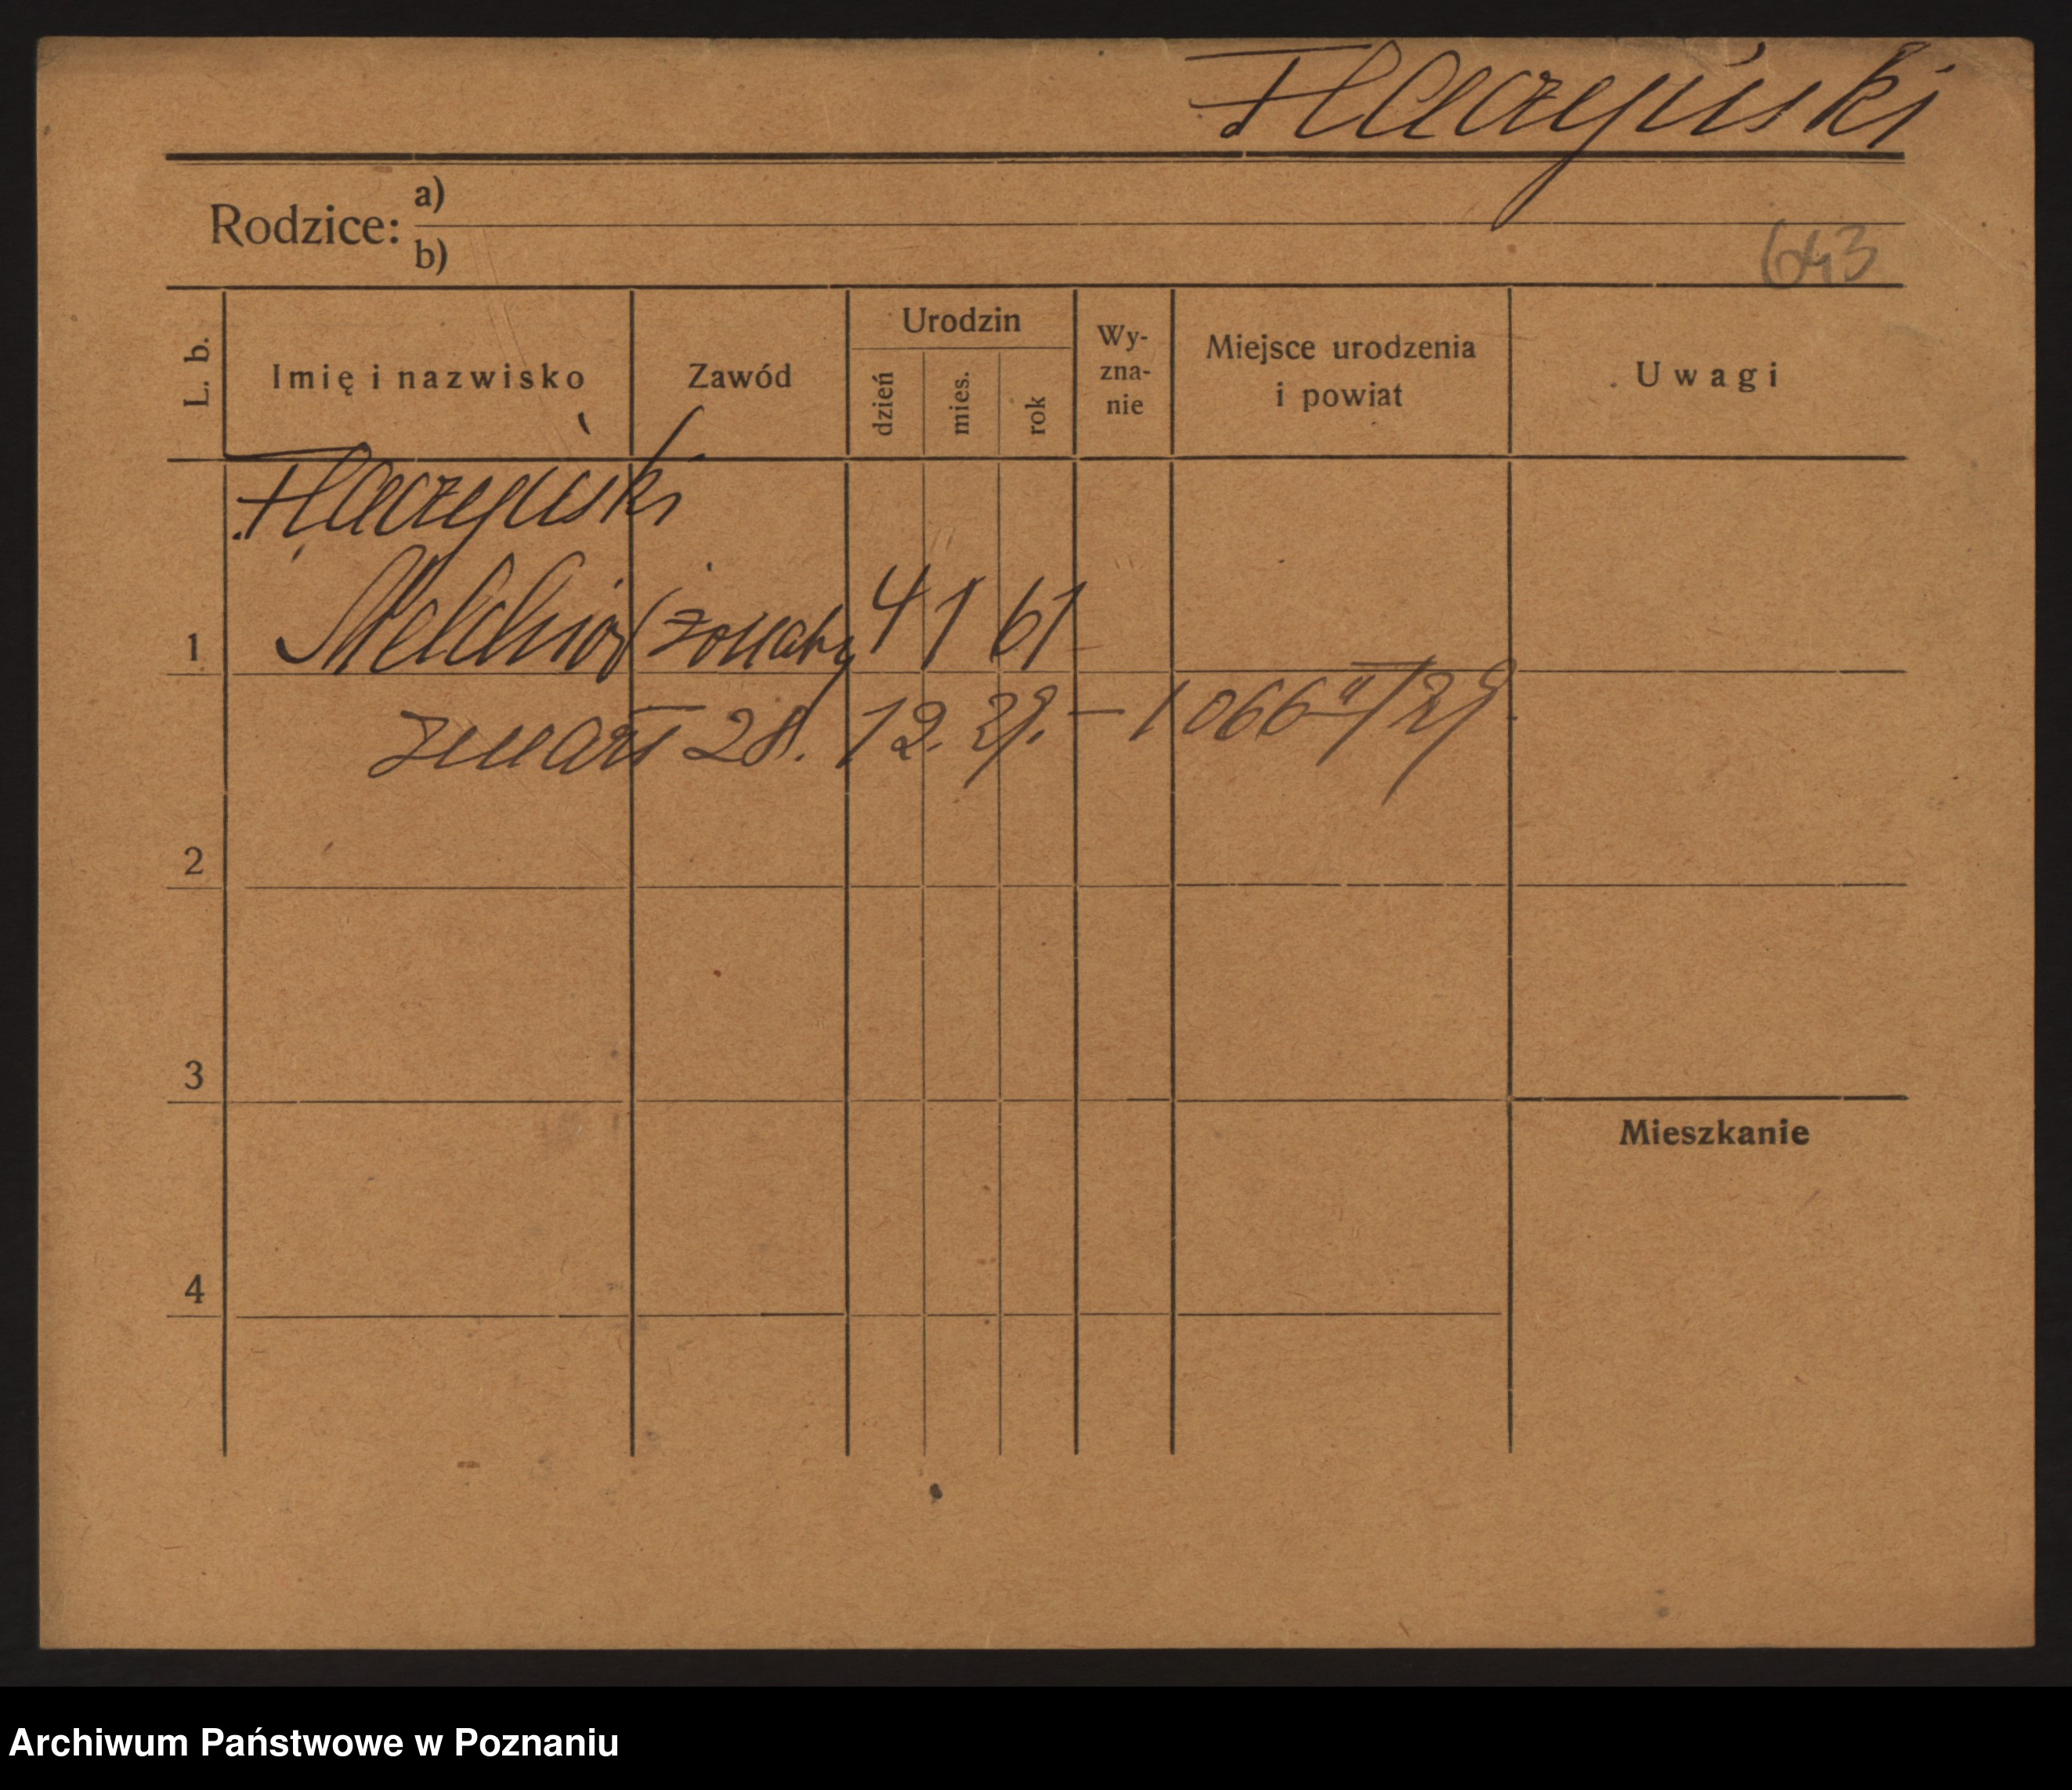 Flaczyński
Rodzice: a)
b)
643
L. b.
Imię i nazwisko
Zawód
Urodzin
dzień
mies.
rok
Wy-
zna-
nie
Miejsce urodzenia
i powiat
Uwagi
Flaczyński
1 Melchior (żonaty 4 1 61
zmarł 28. 12. 29. — 1066 II/29.
2
3
Mieszkanie
4
Archiwum Państwowe w Poznaniu